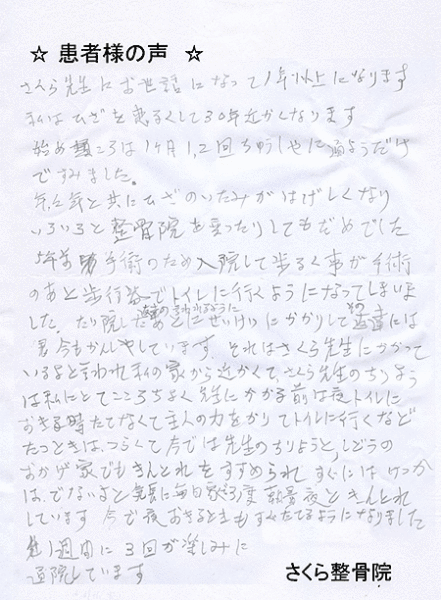 ☆ 患者様の声 ☆
さくら先生にお世話になって1年以上になります
私はひざを悪るくして30年近かくなります
始め頃ころは1ヶ月1,2回ちゅうしゃに通ようだけ
ですみました。
年と共にひざのいたみがはげしくなり
いろいろと整骨院を変ったりしてもだめでした
5年前 手術のため入院して歩るく事が手術
のあと歩行器でトイレに行くようになってしまいま
した。たい院したあとにせいけいにかかりして
今もかんしゃしています。それはさくら先生にかかって
いるよと言われて私の家から近かくて、さくら先生のちりょう
は私にとてここちよく先生にかかる前は夜トイレに
おきる時たてなくて主人の力をかりてトイレに行くなど
たつときは、つらくて今では先生のちりょうと、しどうの
おかげ家でもきんとれをすすめられ すぐにはけっか
は、でないよと 毎日家3度 朝昼夜ときんとれ
しています 今で夜おきるときもすぐたてるようになりました
1週間に3回が楽しみに
通院しています
さくら整骨院